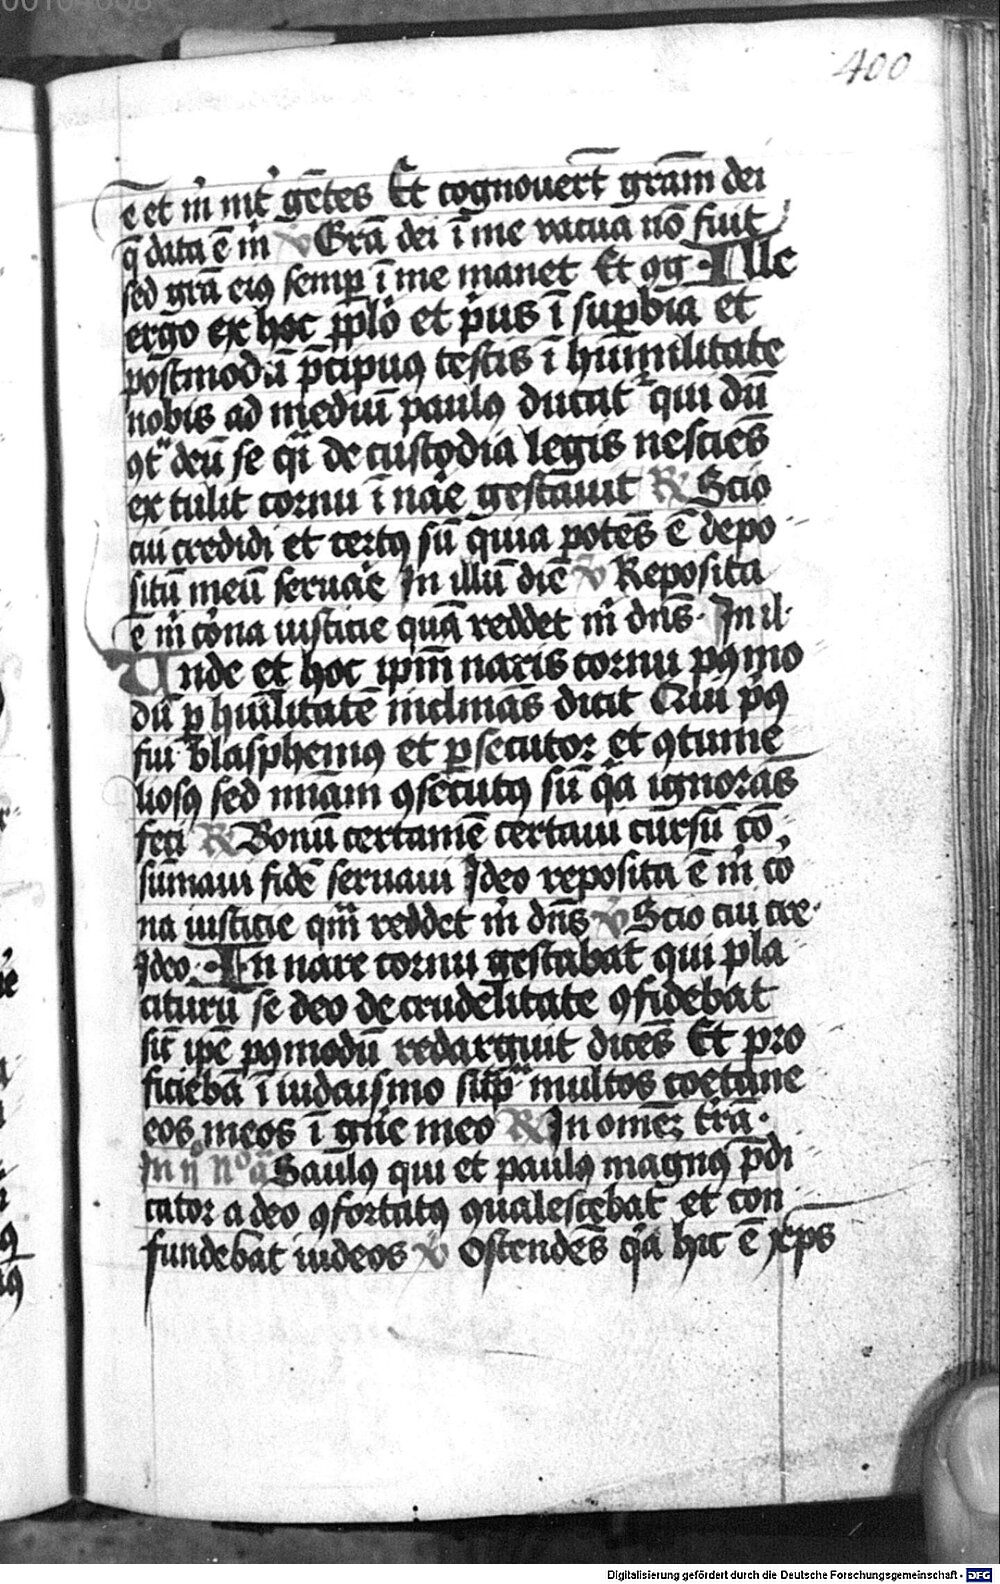 400
e et m̄ int̉ gētes Et cognouerūt gram̄ dei
q̄ data ē m̉ ℣ Gr̄a dei ī me vacua nō fuit
sed gr̄a eiꝰ semꝑ ī me manet Et ꝯg Ille
ergo ex hoc pp̄lo et p̉us ī suꝑbia et
postmodū p̄cipuꝰ testis ī hūmilitate
nobis ad mediū paulꝰ ducat᷑ qui dū
ꝯt̄ deū se q̄i de custodia legis nesciēs
ex tulit cornu ī nar̄e gestauit ℟ Scio
cui credidi et certꝰ sū quia potēs ē depo
sitū meū seruar̄e In illū diē ℣ Reposita
ē m̉ cor̉na iusticie quā reddet m̉ dn̄s In il
Unde et hoc ipm̄ naris cornu pꝰmo
dū ꝑ hūilitatē inclinās dicit Qui p̉ꝰ
fui blasphemꝰ et ꝑsecutor et ꝯtume
liosꝰ sed mīam ꝯsecutꝰ sū q̄a ignorās
feci ℟ Bonū certamē certaui cursū cō
sūmaui fidē seruaui Ideo reposita ē m̉ co
na iusticie qm̄ reddet m̉ dn̄s ℣ Scio cui cre
Ideo In nare cornu gestabat qui pla
citurū se deo de crudelitate ꝯfidebat
sic̄ ipē pꝰmodū redarguit dicēs Et pro
ficiebā ī iudaismo sup̄ multos coetane
eos meos ī gn̄e meo ℟ In omēz t̉rā
In ij noᵒ a Saulꝰ qui et paulꝰ magnꝰ p̄di
cator a deo ꝯfortatꝰ ꝯualescebat et con
fundebat iudeos ℣ Ostendēs q̄a hic ē xp̄s
Digitalisierung gefördert durch die Deutsche Forschungsgemeinschaft - DFG